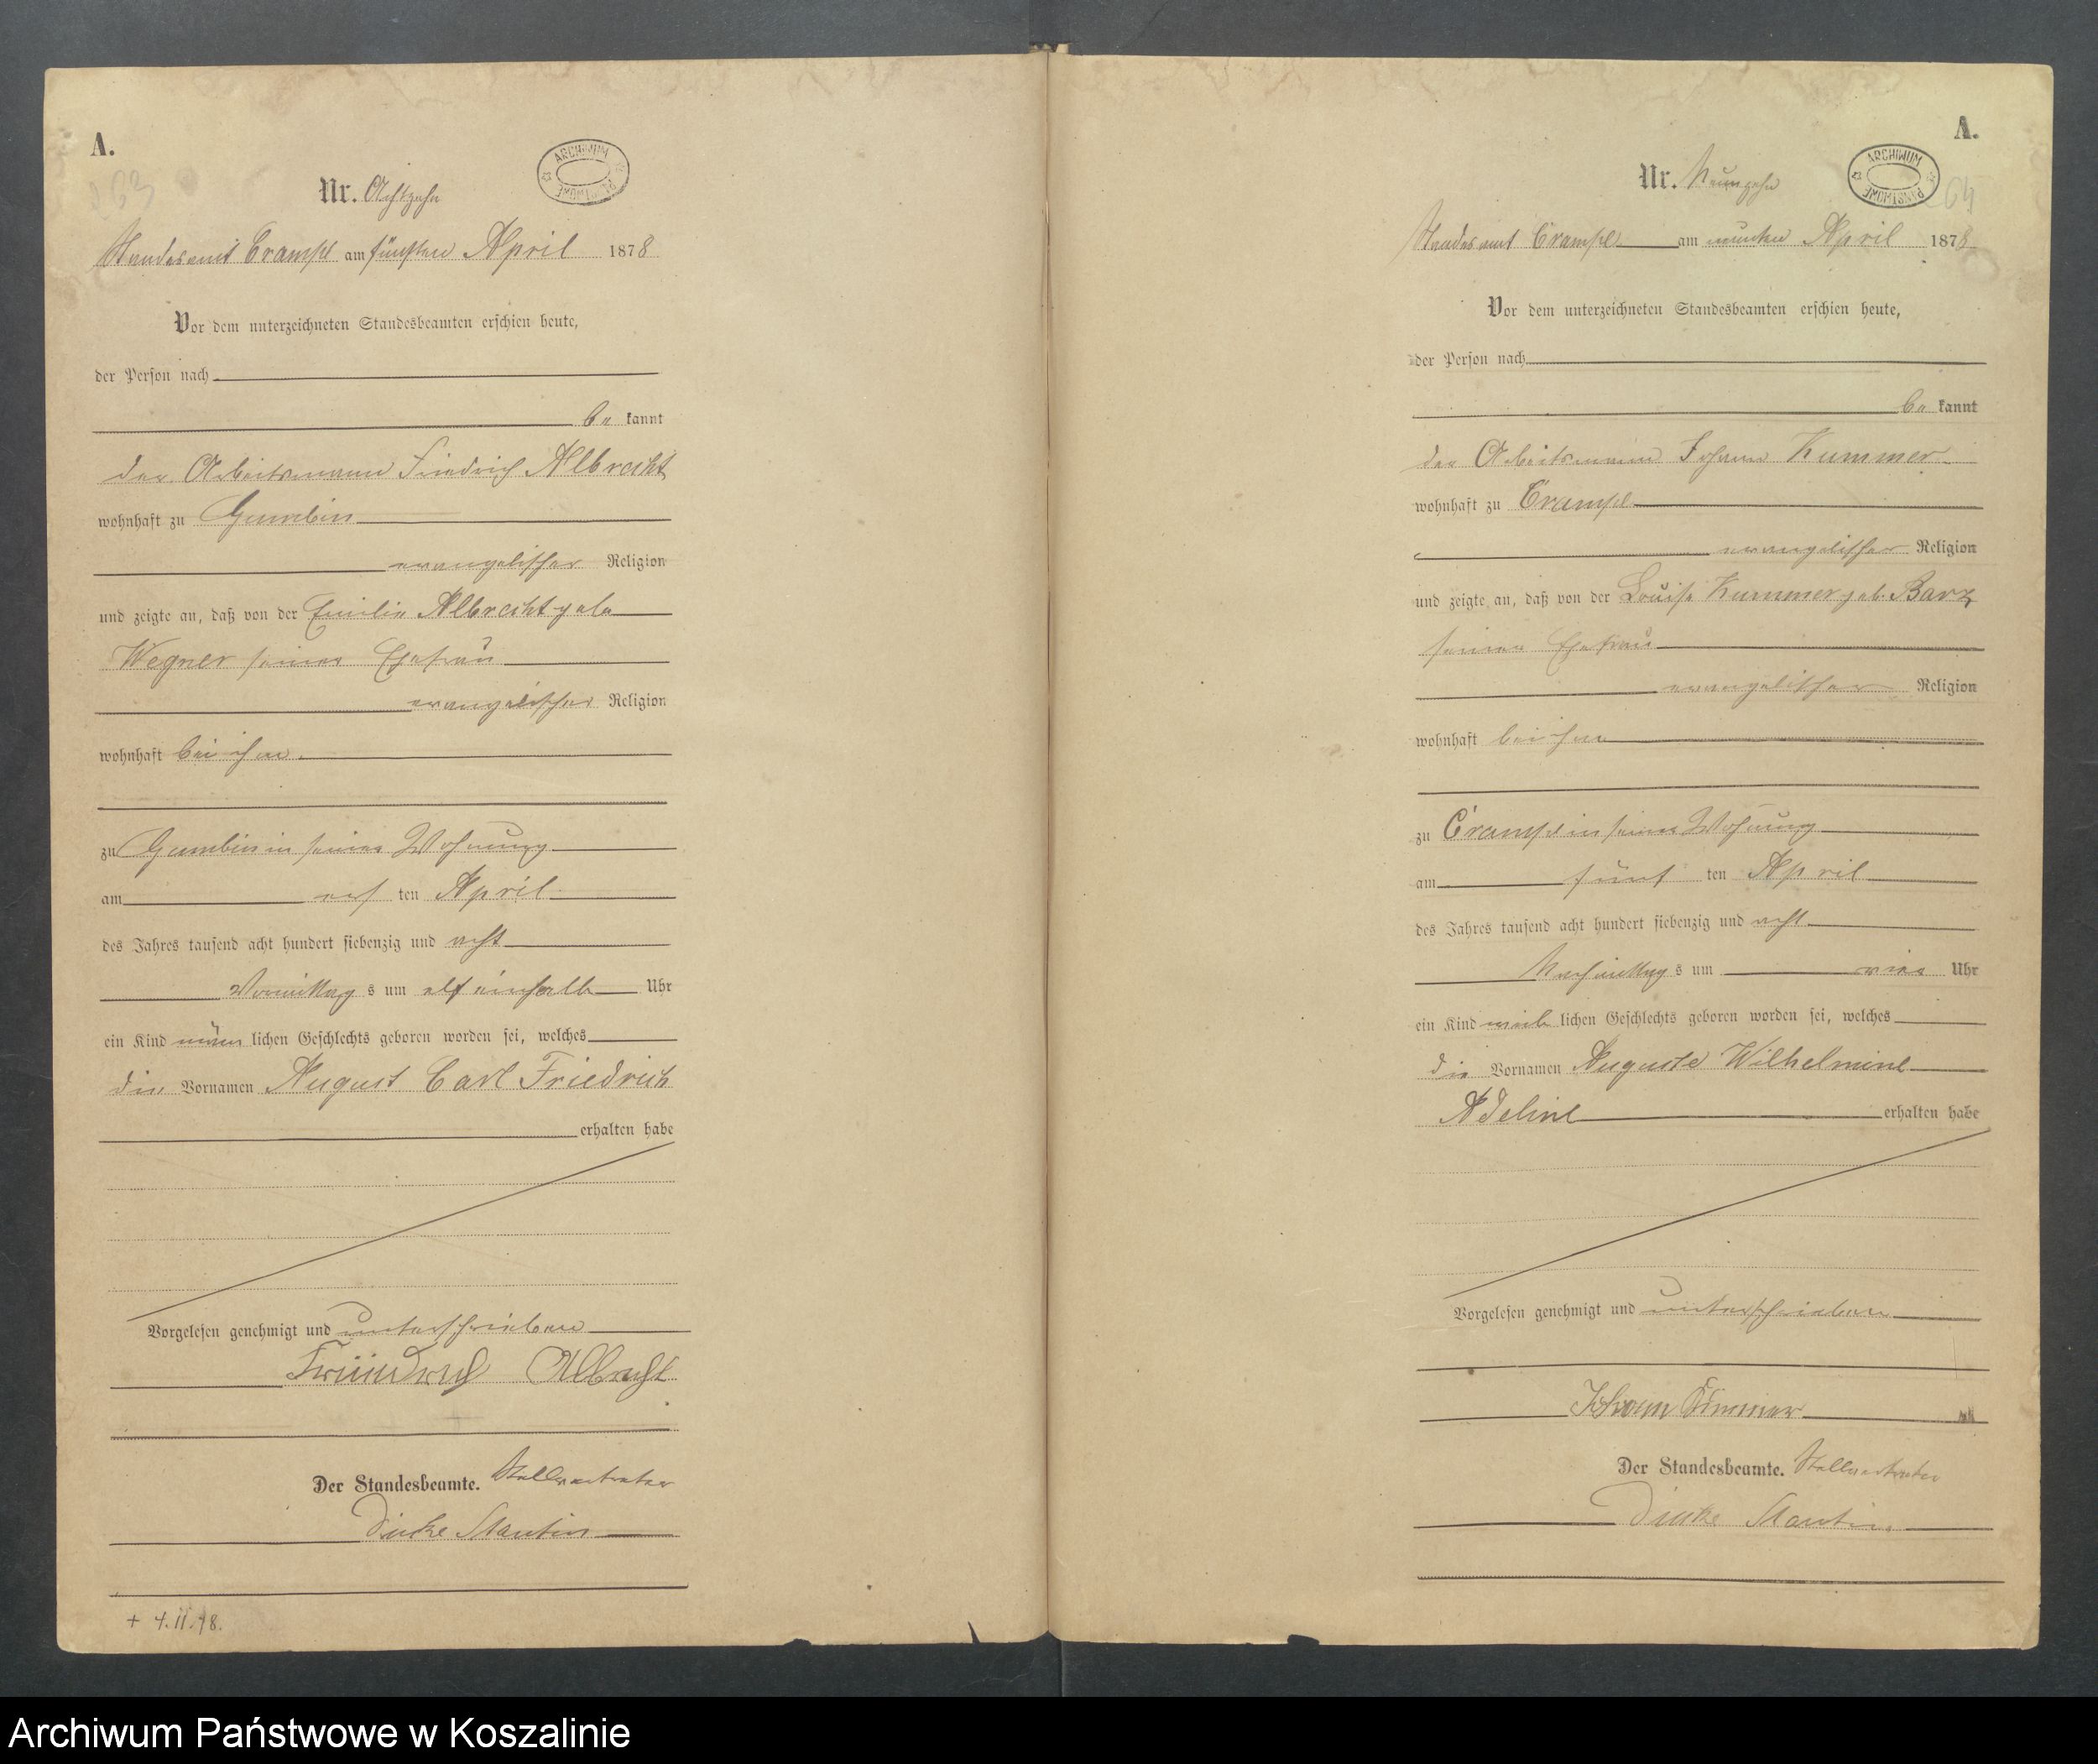 A.
Nr. Achtzehn
ARCHIWUM PAŃSTWOWE
Standesamt Crampe am fünften April 1878.
Vor dem unterzeichneten Standesbeamten erschien heute,
der Person nach
be kannt
der Arbeitsmann Friedrich Albrecht
wohnhaft zu Gumbin
evangelischer Religion
und zeigte an, daß von der Emilie Albrecht geb.
Wegner seiner Ehefrau
evangelischer Religion
wohnhaft bei ihm
zu Gumbin in seiner Wohnung
am ten April
des Jahres tausend acht hundert siebenzig und acht
Vormittag s um elf einhalb Uhr
ein Kind männ lichen Geschlechts geboren worden sei, welches
die Vornamen August Carl Friedrich
erhalten habe
Vorgelesen genehmigt und unterschrieben
Albrecht
Der Standesbeamte. Stellvertreter
+ 4.II.48.
A.
Nr. Neunzehn
ARCHIWUM PAŃSTWOWE
64
Standesamt Crampe am neunten April 1878.
Vor dem unterzeichneten Standesbeamten erschien heute,
der Person nach
be kannt
der Arbeitsmann Johann Kummer
wohnhaft zu Crampe
evangelischer Religion
und zeigte an, daß von der Louise Kummer geb. Barz
seiner Ehefrau
evangelischer Religion
wohnhaft bei ihm
zu Crampe in seiner Wohnung
am fünf ten April
des Jahres tausend acht hundert siebenzig und acht
Nachmittag s um vier Uhr
ein Kind weib lichen Geschlechts geboren worden sei, welches
die Vornamen Auguste Wilhelmine
Adeline erhalten habe
Vorgelesen genehmigt und unterschrieben
Johann Kummer
Der Standesbeamte. Stellvertreter
Archiwum Państwowe w Koszalinie